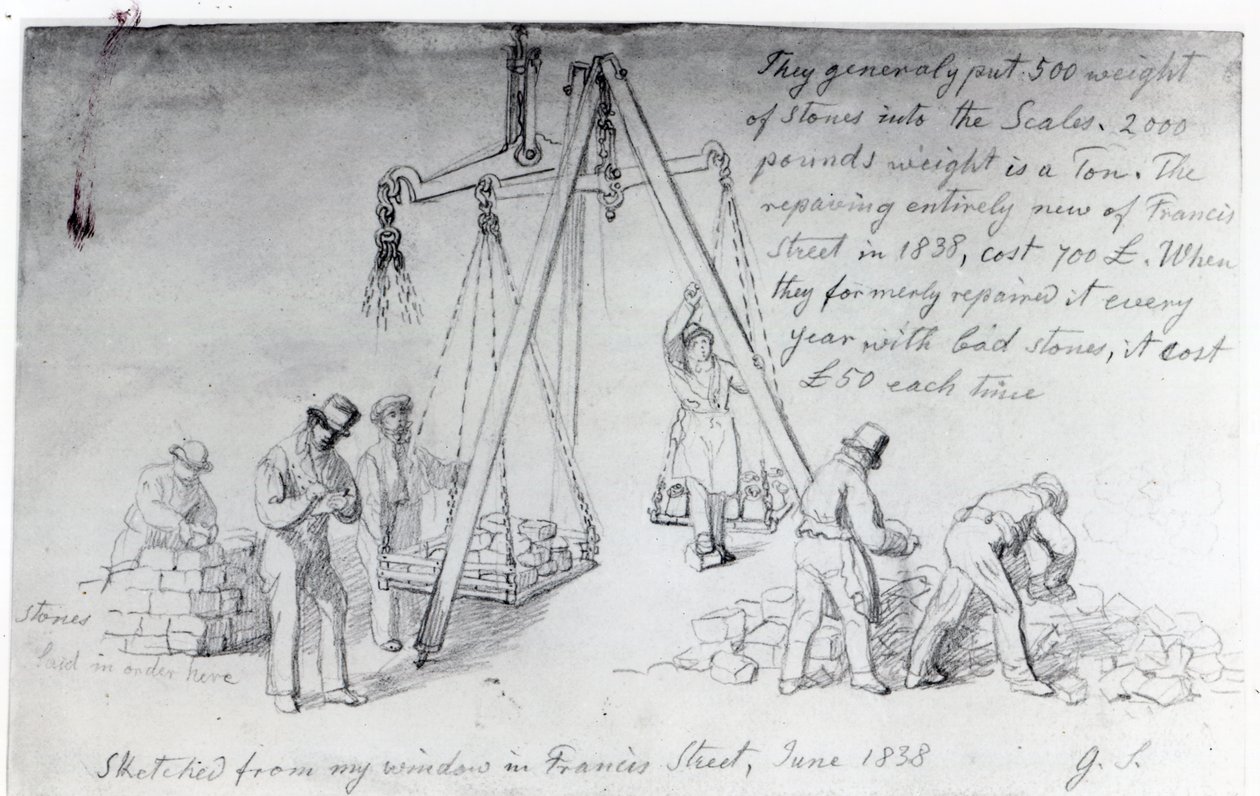 They generaly put 500 weight
of stones into the Scales. 2000
pounds weight is a Ton. The
repaving entirely new of Francis
Street in 1838, cost 700 £. When
they formerly repaired it every
year with bad stones, it cost
£50 each time
stones
laid in order here
Sketched from my window in Francis Street, June 1838
G. S.